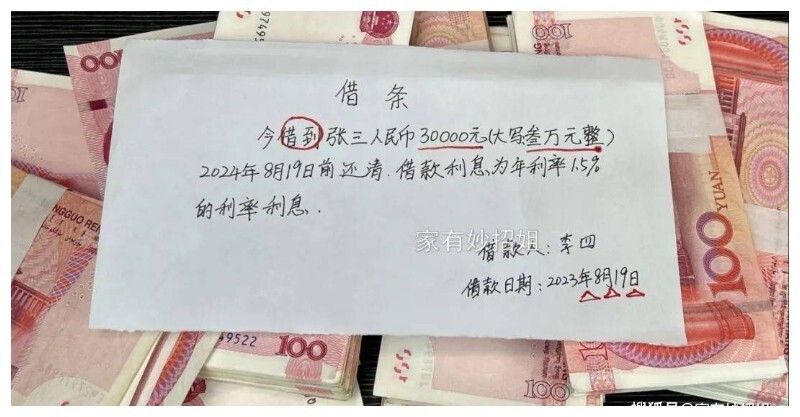 借条
今借到张三人民币30000元(大写:叁万元整)
2024年8月19日前还清.借款利息为年利率1.5%
的利率利息.
家有妙招姐
借款人:李四
借款日期:2023年8月19日
100
YUAN
100
100
NGGUO REN
49522
100